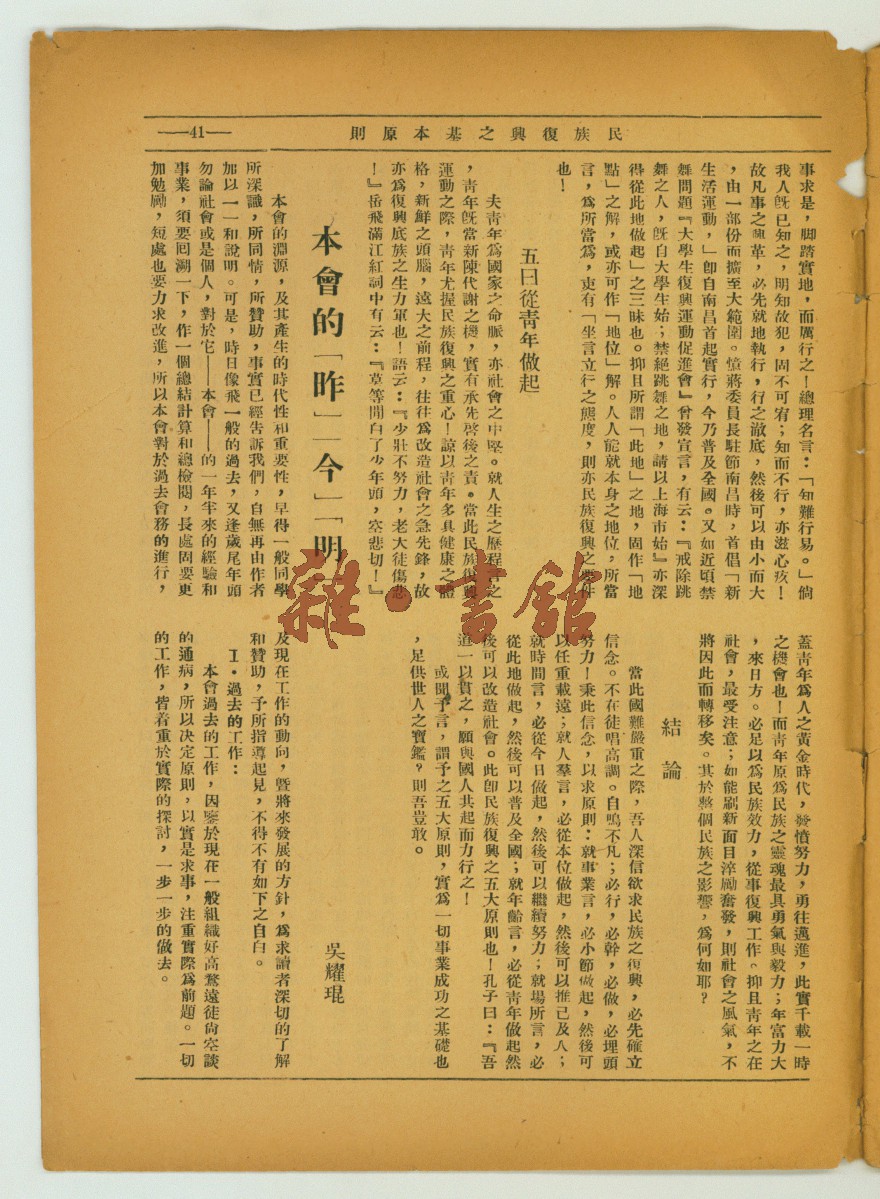 民族復興之基本原則
—41—
事求是，脚踏實地，而厲行之！總理名言：「知難行易。」倘
我人旣已知之，明知故犯，固不可宥；知而不行，亦滋心疚！
故凡事之興革，必先就地執行，行之澈底，然後可以由小而大
，由一部份而擴至大範圍。憶蔣委員長駐節南昌時，首倡「新
生活運動，」卽自南昌首起實行，今乃普及全國。又如近頃禁
舞問題『大學生復興運動促進會』曾發宣言，有云：『戒除跳
舞之人，旣自大學生始；禁絕跳舞之地，請以上海市始』亦深
得從此地做起」之三昧也。抑且所謂「此地」之地，固作「地
點」之解，或亦可作「地位」解。人人能就本身之地位，所當
言，爲所當爲，更有「坐言立行之態度，則亦民族復興之要件
也！
五曰從靑年做起
夫靑年爲國家之命脈，亦社會之中堅。就人生之歷程言之
，靑年旣當新陳代謝之機，實有承先啓後之責。當此民族復興
運動之際，靑年尤握民族復興之重心！諒以靑年多具健康之體
格，新鮮之頭腦，遠大之前程，往往爲改造社會之急先鋒，故
亦爲復興底族之生力軍也！語云：『少壯不努力，老大徒傷悲
！』岳飛滿江紅詞中有云：『莫等閒白了少年頭，空悲切！』
蓋靑年爲人之黃金時代，發憤努力，勇往邁進，此實千載一時
之機會也！而靑年原爲民族之靈魂最具勇氣與毅力；年富力大
，來日方。必足以爲民族效力，從事復興工作。抑且靑年之在
社會，最受注意；如能刷新面目淬勵奮發，則社會之風氣，不
將因此而轉移矣。其於整個民族之影響，爲何如耶？
結論
當此國難嚴重之際，吾人深信欲求民族之復興，必先確立
信念。不在徒唱高調。自鳴不凡；必行，必幹，必做，必埋頭
努力！秉此信念，以求原則：就事業言，必小節做起，然後可
以任重載遠；就人羣言，必從本位做起，然後可以推己及人；
就時間言，必從今日做起，然後可以繼續努力；就塲所言，必
從此地做起，然後可以普及全國；就年齡言，必從靑年做起然
後可以改造社會。此卽民族復興之五大原則也！孔子曰：『吾
道一以貫之，願與國人共起而力行之！
或聞予言，謂予之五大原則，實爲一切事業成功之基礎也
，足供世人之寶鑑？則吾豈敢。
本會的「昨」「今」「明」
吳耀琨
本會的淵源，及其產生的時代性和重要性，早得一般同學
所深識，所同情，所贊助，事實已經告訴我們，自無再由作者
加以一一和說明。可是，時日像飛一般的過去，又逢歲尾年頭
勿論社會或是個人，對於它——本會——的一年半來的經驗和
事業，須要囘溯一下，作一個總結計算和總檢閱，長處固要更
加勉勵，短處也要力求改進，所以本會對於過去會務的進行，
及現在工作的動向，曁將來發展的方針，爲求讀者深切的了解
和贊助，予所指導起見，不得不有如下之自白。
I．過去的工作：
本會過去的工作，因鑒於現在一般組織好高騖遠徒尙空談
的通病，所以決定原則，以實是求事，注重實際爲前題。一切
的工作，皆着重於實際的探討，一步一步的做去。
雜·書館